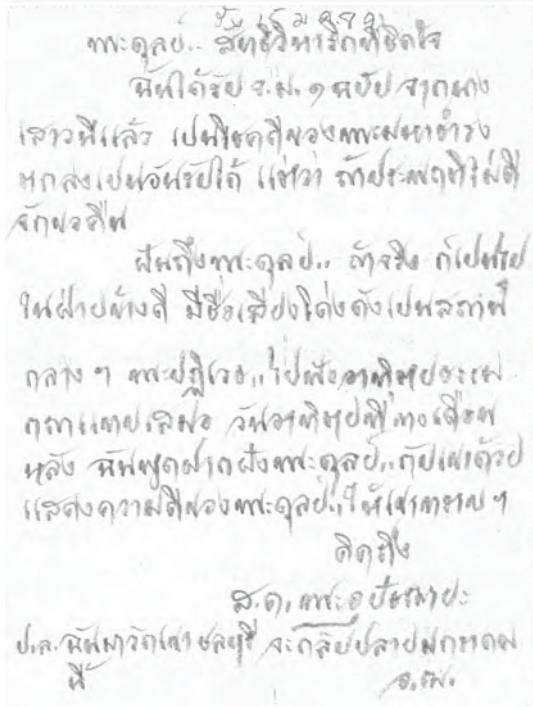 วัน ๕ ม.ค.
พระดุลย์.. สัทธิวิหาริกที่ชิดใจ
ฉันได้รับ จ.ม. ๑ ฉบับ จากนาง
เสาวนีแล้ว เป็นโชคดีของพระมหาธำรง
ตกลงเป็นอันรับได้ แต่ว่า ถ้าประพฤติไม่ดี
จักขอคืน
ฝันถึงพระดุลย์.. ถ้าจริง ก็เป็นไป
ในฝ่ายข้างดี มีชื่อเสียงโด่งดังเป็นสถานี
กลาง ๆ พระปฏิเวธ.. ไปฟัง
เสมอ วันอาทิตย์ที่ เดือน
หลัง ฉันพูดฝากฝังพระดุลย์.. กับเขาด้วย
แสดงความดีของพระดุลย์.. ให้เขาทราบ ๆ
คิดถึง
ส.ด. พระอุปัชฌายะ
ป.ล. ฉันมาวัดเขา ชลบุรี จะกลับปลายมกราคม
นี้